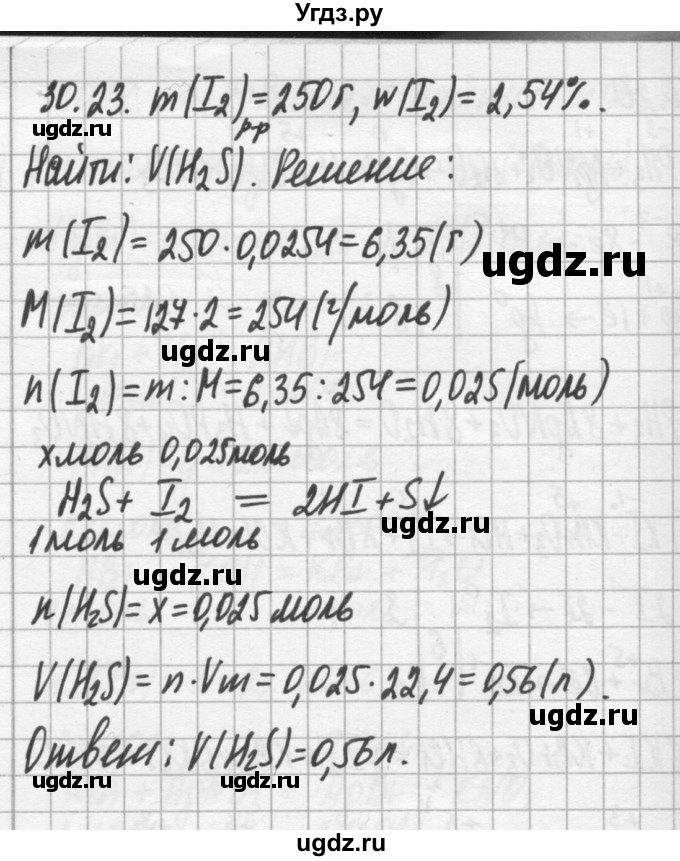 Угдз.ру
30.23. m(I₂)р-р=250г, w(I₂)=2,54%.
ugdz.ru
ugdz.ru
Найти: V(H₂S). Решение:
m(I₂)=250·0,0254=6,35(г)
ugdz.ru
M(I₂)=127·2=254(г/моль)
ugdz.ru
n(I₂)=m:M=6,35:254=0,025(моль)
xмоль 0,025моль
H₂S+ I₂ = 2HI+S↓
ugdz.ru
1моль 1моль
ugdz.ru
n(H₂S)=x=0,025моль
V(H₂S)=n·Vm=0,025·22,4=0,56(л).
ugdz.ru
Ответ: V(H₂S)=0,56л.
ugdz.ru ugdz.ru
ugdz.ru
ugdz.ru